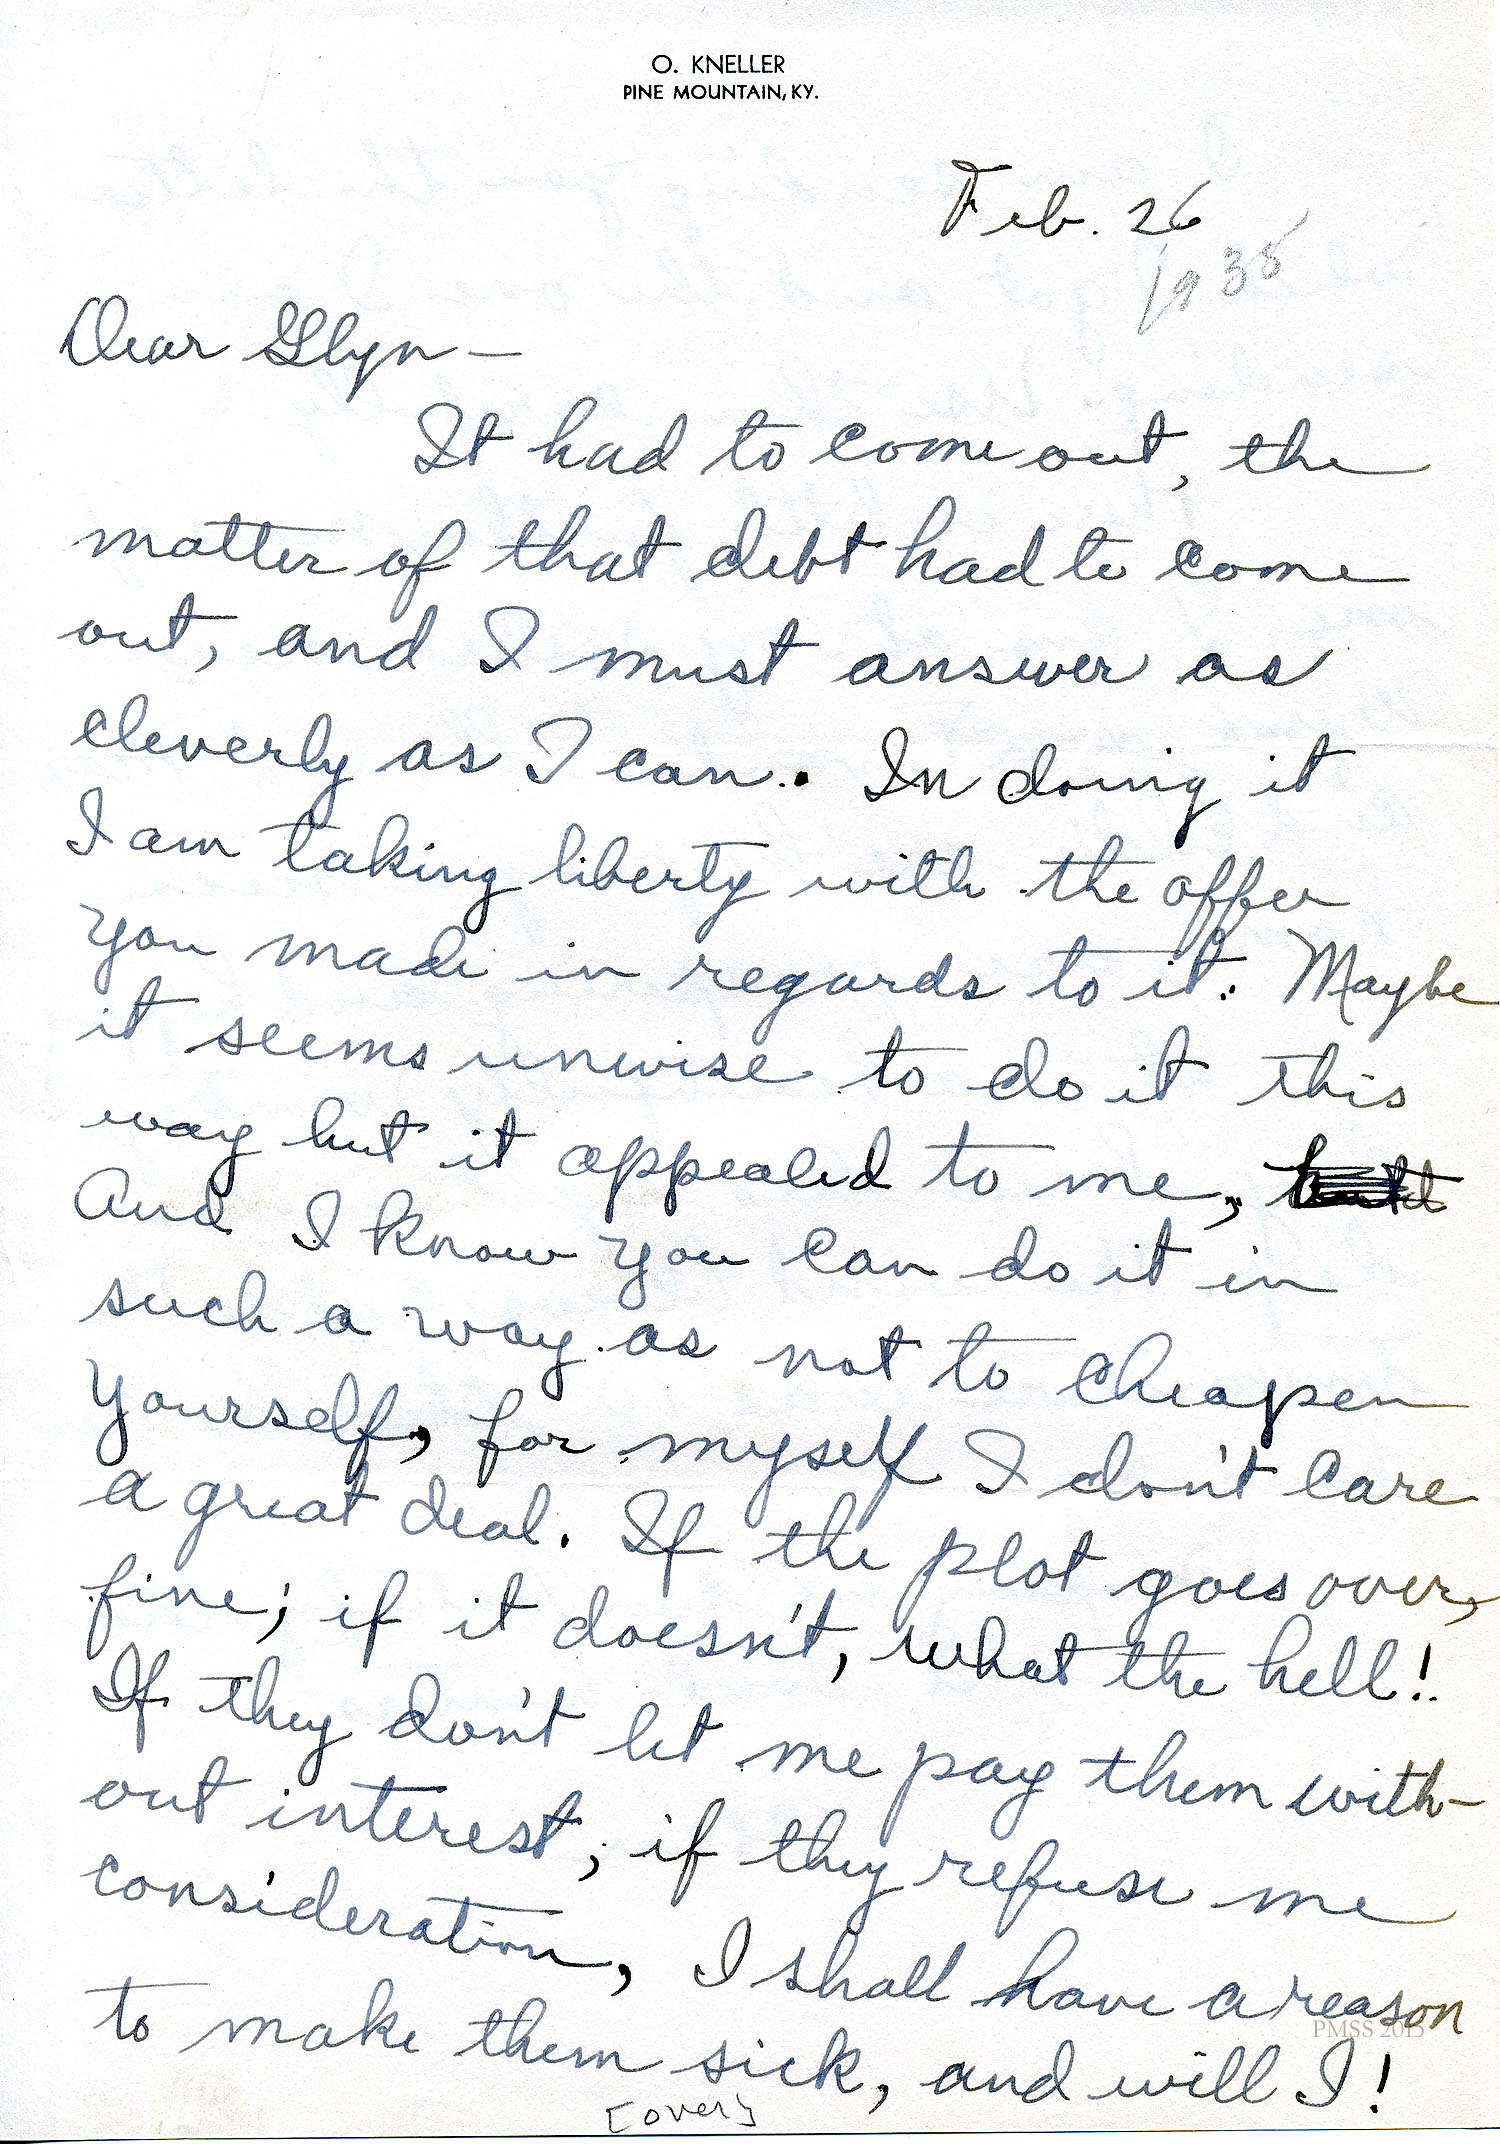 O. KNELLER
PINE MOUNTAIN, KY.
Feb. 26
1938
Dear Glyn—
It had to come out, the
matter of that debt had to come
out, and I must answer as
cleverly as I can. In doing it
I am taking liberty with the offer
you made in regards to it. Maybe
it seems unwise to do it this
way but it appealed to me,
And I know you can do it in
such a way as not to cheapen
yourself, for myself I don't care
a great deal. If the plot goes over,
fine; if it doesn't, what the hell!
If they don't let me pay them with-
out interest, if they refuse me
consideration, I shall have a reason
to make them sick, and will I!
[over]
PMSS 2015